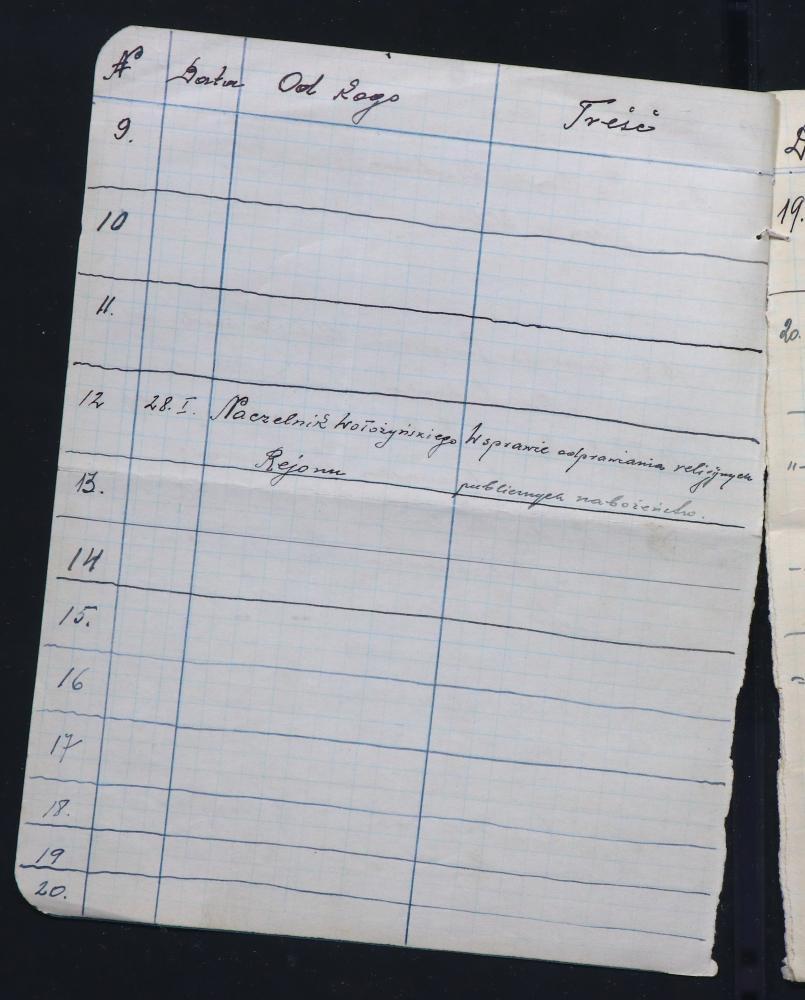 № Data Od kogo Treść
9.
10
11.
12 28.I. Naczelnik Wołożyńskiego W sprawie odprawiania religijnych
Rejonu publicznych nabożeństw.
13.
14
15.
16
17
18.
19
20.
19.
20.